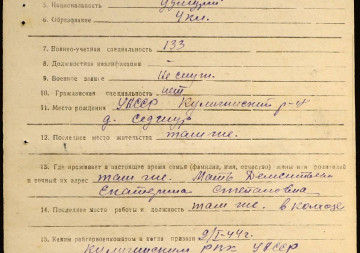 5. Национальность удмурт
6. Образование 4 кл.
7. Военно-учетная специальность 133
8. Должностная квалификация -
9. Военное звание Не служ.
10. Гражданская специальность нет
11. Место рождения УАССР Кулигинский р-н
д. Седъяур
12. Последнее место жительства там же.
13. Где проживает в настоящее время семья (фамилия, имя, отчество) жены или родителей
и точный их адрес там же. Мать Дементьева
Екатерина Степановна
14. Последнее место работы и должность там же. в колхозе
15. Каким райгорвоенкоматом и когда призван 9/I-44г.
Кулигинским РВК УАССР